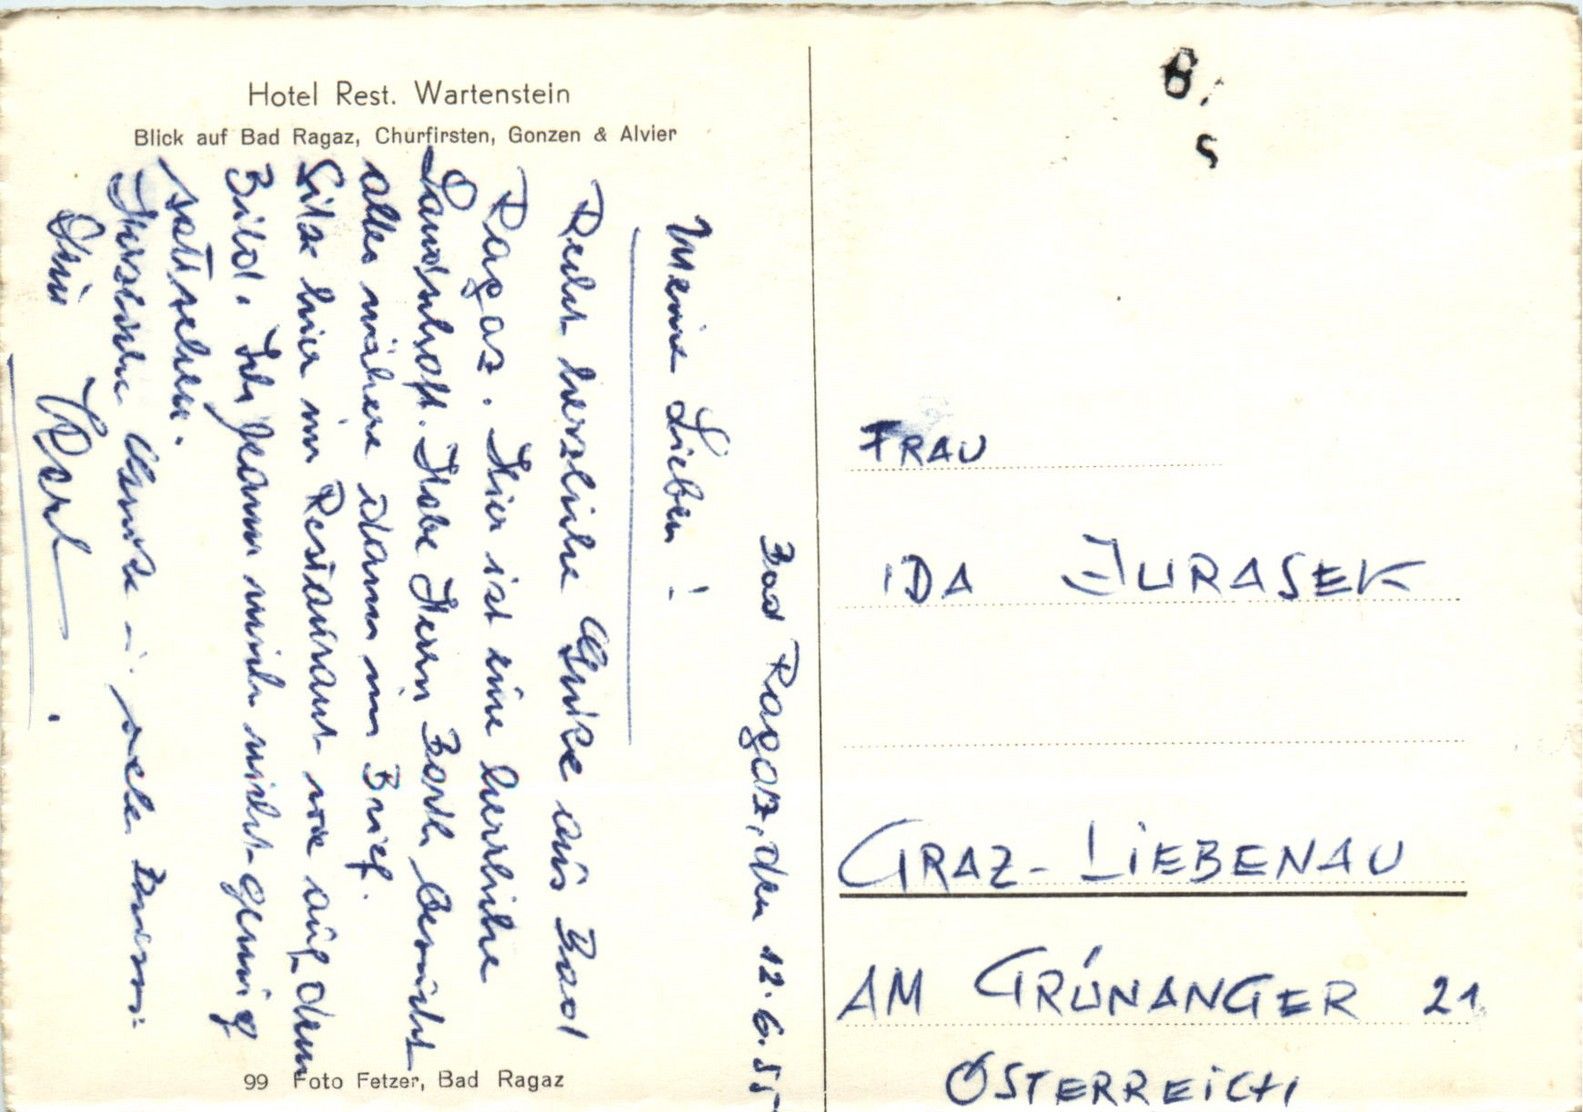 Hotel Rest. Wartenstein
Blick auf Bad Ragaz, Churfirsten, Gonzen & Alvier
Bad Ragaz, den 12.6.55
Meine Lieben!
Recht herzliche Grüße aus Bad
Ragaz. Hier ist eine herrliche
Landschaft. Habe Herrn Barth besucht
alles nähere dann im Brief.
Sitze hier im Restaurant wie auf dem
Bild. Ich kann mich nicht genug
satt sehen.
Herzliche Grüße u. viele
Euer Karl
99 Foto Fetzer, Bad Ragaz
FRAU
IDA JURASEK
GRAZ-LIEBENAU
AM GRÜNANGER 21
ÖSTERREICH